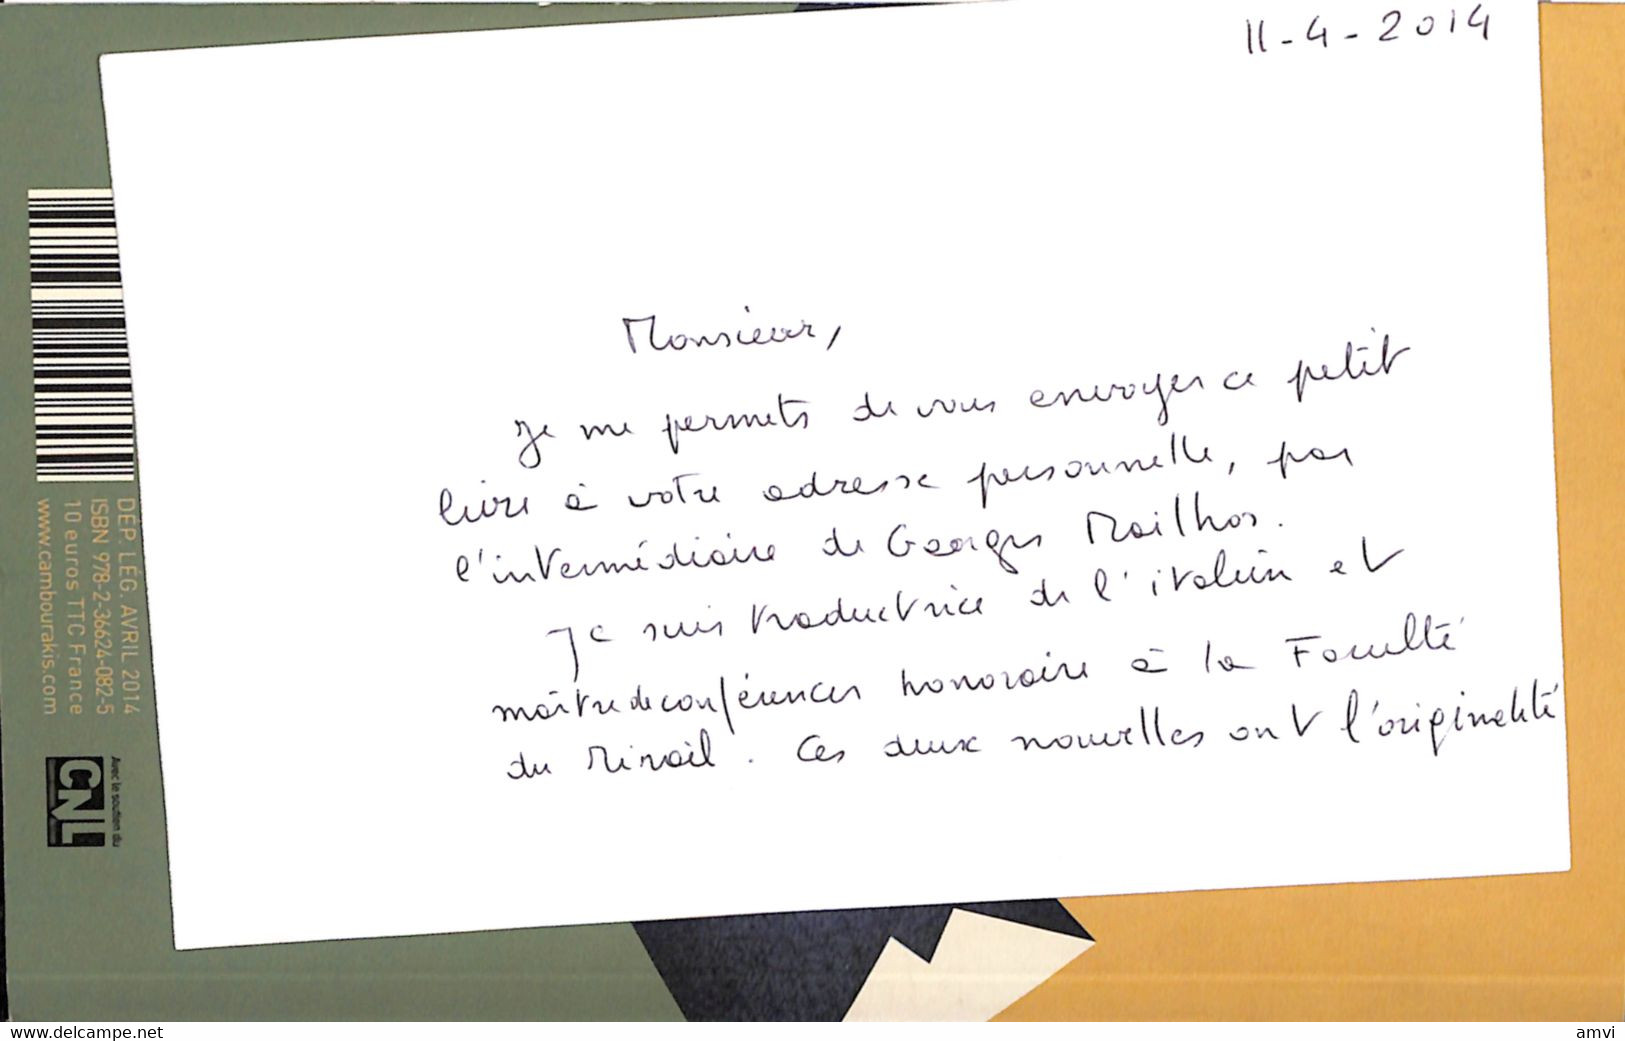 11-4-2014
Monsieur,
Je me permets de vous envoyer ce petit
livre à votre adresse personnelle, par
l'intermédiaire de Georges Mailhos.
Je suis traductrice de l'italien et
maître de conférences honoraire à la Faculté
du Mirail. Ces deux nouvelles ont l'originalité
DÉP. LÉG. AVRIL 2014
ISBN 978-2-36624-082-5
10 euros TTC France
www.cambourakis.com
Avec le soutien du
CNL
www.delcampe.net
amvi